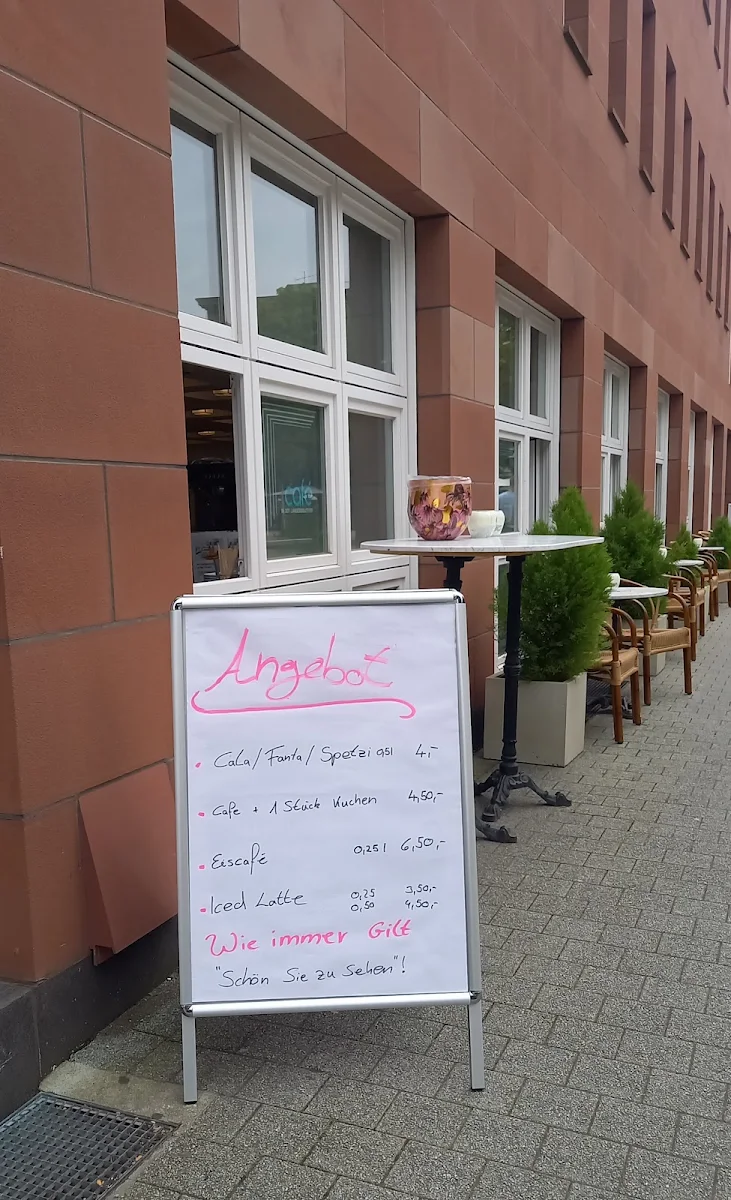 café
Angebot
• Cola/Fanta/Spetzi 0,5l 4,-
• Cafe + 1 Stück Kuchen 4,50,-
• Eiscafé 0,25l 6,50,-
• Iced Latte 0,25 3,50,-
0,50 4,50,-
Wie immer Gilt
"Schön Sie zu sehen"!